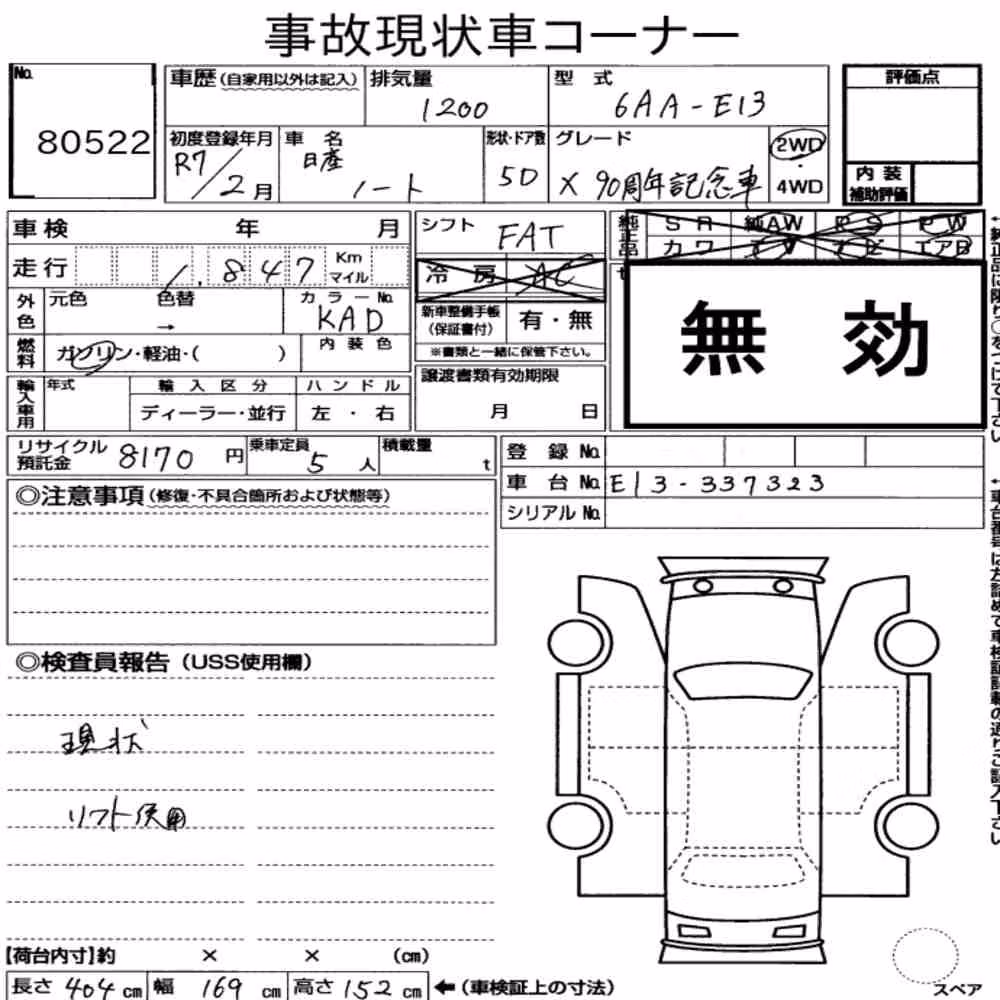 事故現状車コーナー
No. 80522
車歴(自家用以外は記入)
排気量 1200
型式 6AA-E13
評価点
初度登録年月 R7/2月
車名 日産 ノート
形状・ドア数 5D
グレード X 90周年記念車
2WD・4WD
内装補助評価
車検 年 月
シフト FAT
純正品 SR 純AW RS PW
カワ TV ナビ エアB
走行 1,847 Km マイル
冷房 AC
無効
外色 元色 色替 →
カラーNo. KAD
新車整備手帳(保証書付) 有・無
※書類と一緒に保管下さい。
燃料 ガソリン・軽油・( )
内装色
輸入車用 年式 輸入区分 ハンドル
ディーラー・並行 左・右
譲渡書類有効期限
月 日
リサイクル預託金 8170円
乗車定員 5人
積載量 t
登録No.
車台No. E13-337323
シリアルNo.
◎注意事項(修復・不具合箇所および状態等)
◎検査員報告(USS使用欄)
現状
リフト使用
【荷台内寸】約 × × (cm)
長さ 404 cm 幅 169 cm 高さ 152 cm ←(車検証上の寸法)
スペア